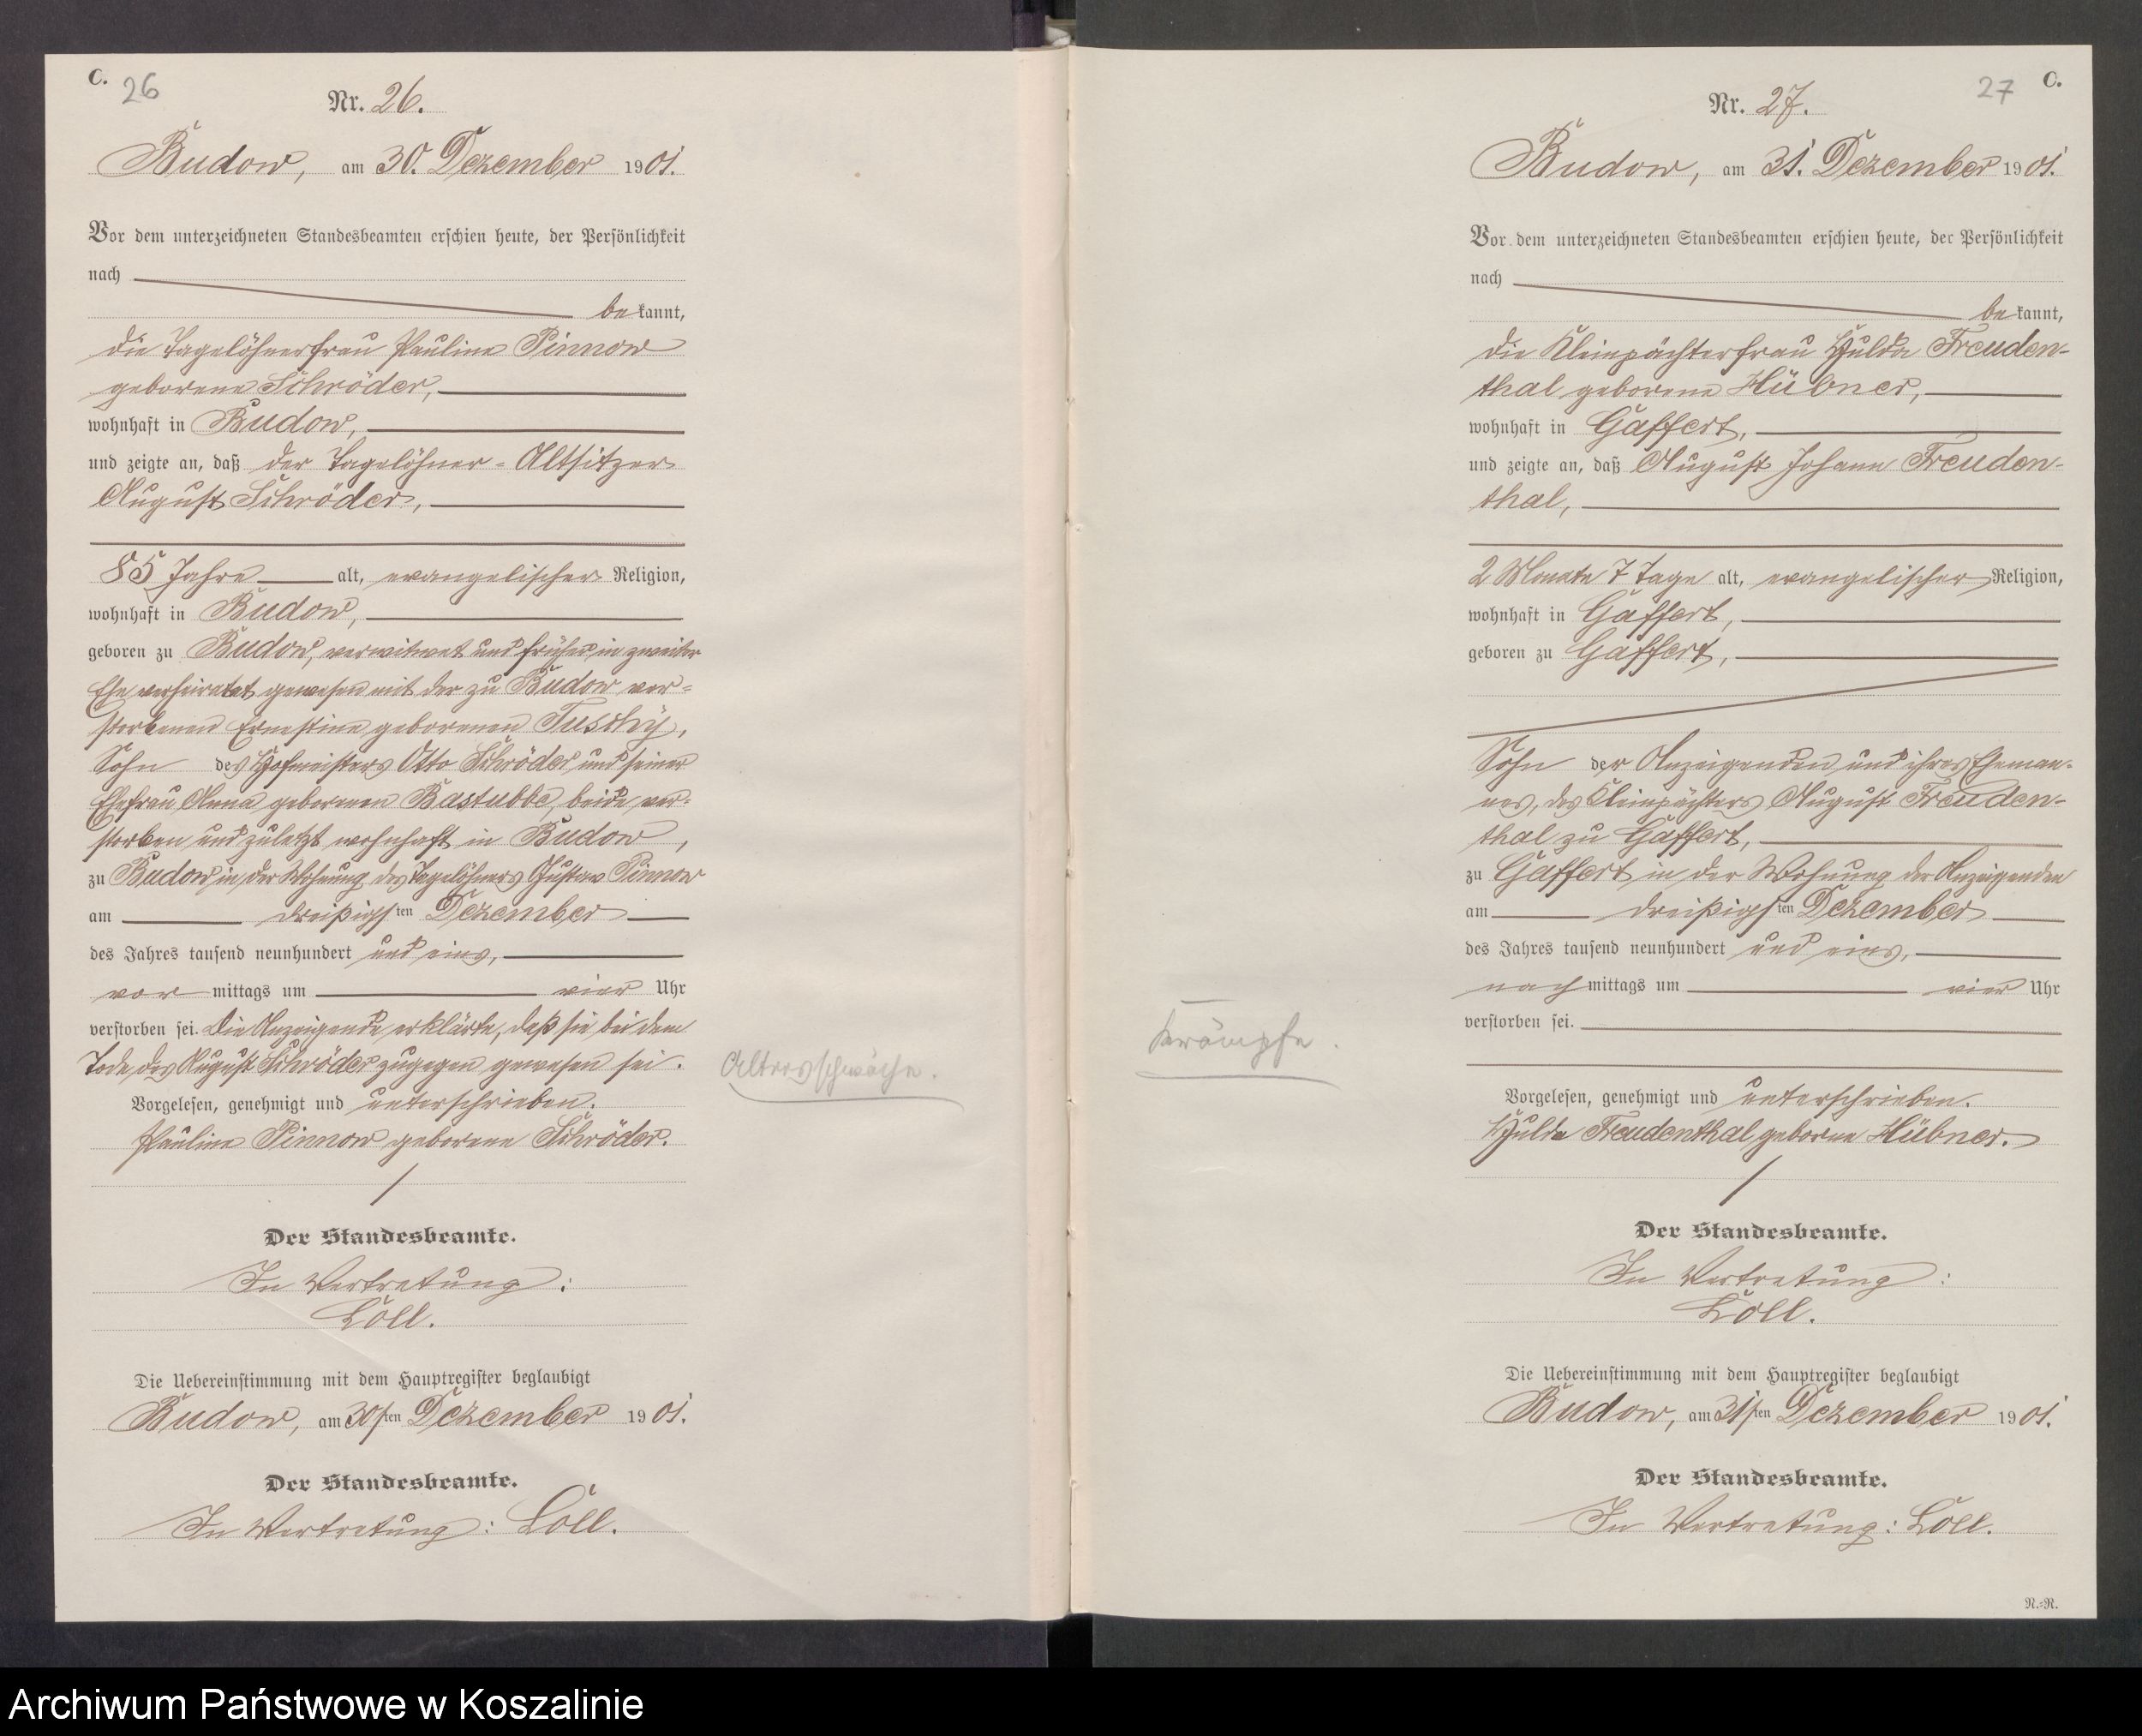 C. 26
Nr. 26.
Budow, am 30. Dezember 1901.
Vor dem unterzeichneten Standesbeamten erschien heute, der Persönlichkeit
nach
bekannt,
die Tagelöhnerfrau Pauline Pinnow
geborene Schröder,
wohnhaft in Budow,
und zeigte an, daß der Tagelöhner-Altsitzer
August Schröder,
85 Jahre alt, evangelischer Religion,
wohnhaft in Budow,
geboren zu Budow, verwitwet und früher in zweiter
Ehe verheiratet gewesen mit der zu Budow ver-
storbenen Ernestine geborenen Tuschy,
Sohn des Hofmeisters Otto Schröder und seiner
Ehefrau Anna geborenen Bastubbe, beide ver-
storben und zuletzt wohnhaft in Budow,
zu Budow in der Wohnung des Tagelöhners Gustav Pinnow
am dreißigsten Dezember
des Jahres tausend neunhundert und eins,
vormittags um vier Uhr
verstorben sei. Die Anzeigende erklärte, daß sie bei dem
Tode des August Schröder zugegen gewesen sei.
Altersschwäche.
Vorgelesen, genehmigt und unterschrieben.
Pauline Pinnow geborene Schröder.
Der Standesbeamte.
In Vertretung:
Löll.
Die Uebereinstimmung mit dem Hauptregister beglaubigt
Budow, am 30sten Dezember 1901.
Der Standesbeamte.
In Vertretung: Löll.
27 C.
Nr. 27.
Budow, am 31. Dezember 1901.
Vor dem unterzeichneten Standesbeamten erschien heute, der Persönlichkeit
nach
bekannt,
die Kleinpächterfrau Hulda Freuden-
thal geborene Hübner,
wohnhaft in Gaffert,
und zeigte an, daß August Johann Freuden-
thal,
2 Monate 7 Tage alt, evangelischer Religion,
wohnhaft in Gaffert,
geboren zu Gaffert,
Sohn der Anzeigenden und ihres Eheman-
nes, des Kleinpächters August Freuden-
thal zu Gaffert,
zu Gaffert in der Wohnung der Anzeigenden
am dreißigsten Dezember
des Jahres tausend neunhundert und eins,
nachmittags um vier Uhr
verstorben sei.
Krämpfe.
Vorgelesen, genehmigt und unterschrieben.
Hulda Freudenthal geborne Hübner.
Der Standesbeamte.
In Vertretung:
Löll.
Die Uebereinstimmung mit dem Hauptregister beglaubigt
Budow, am 31sten Dezember 1901.
Der Standesbeamte.
In Vertretung: Löll.
N.-R.
Archiwum Państwowe w Koszalinie